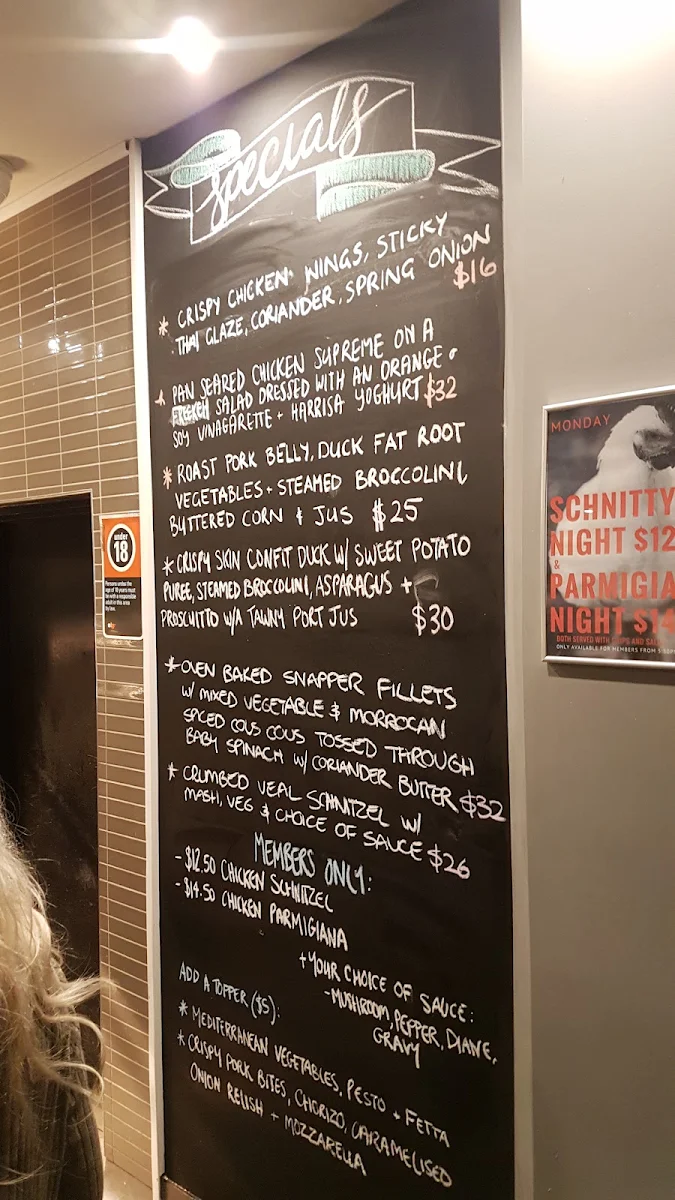 Specials
* CRISPY CHICKEN WINGS, STICKY
THAI GLAZE, CORIANDER, SPRING ONION
$16
* PAN SEARED CHICKEN SUPREME ON A
SALAD DRESSED WITH AN ORANGE &
SOY VINAGARETTE + HARRISA YOGHURT $32
* ROAST PORK BELLY, DUCK FAT ROOT
VEGETABLES + STEAMED BROCCOLINI
BUTTERED CORN & JUS $25
* CRISPY SKIN CONFIT DUCK W/ SWEET POTATO
PUREE, STEAMED BROCCOLINI, ASPARAGUS +
PROSCUITTO W/A TAWNY PORT JUS $30
* OVEN BAKED SNAPPER FILLETS
W/ MIXED VEGETABLE & MORROCAN
SPICED COUS COUS TOSSED THROUGH
BABY SPINACH W/ CORIANDER BUTTER $32
* CRUMBED VEAL SCHNITZEL W/
MASH, VEG & CHOICE OF SAUCE $26
MEMBERS ONLY:
- $12.50 CHICKEN SCHNITZEL
- $14.50 CHICKEN PARMIGIANA
+ YOUR CHOICE OF SAUCE:
- MUSHROOM, PEPPER, DIANE,
GRAVY
ADD A TOPPER ($5):
* MEDITERRANEAN VEGETABLES, PESTO + FETTA
* CRISPY PORK BITES, CHORIZO, CARAMELISED
ONION RELISH + MOZZARELLA
under
18
Persons under the
age of 18 years must
be with a responsible
adult in this area
by law.
MONDAY
SCHNITTY
NIGHT $12
&
PARMIGIA
NIGHT $14
BOTH SERVED WITH CHIPS AND SALAD
ONLY AVAILABLE FOR MEMBERS FROM